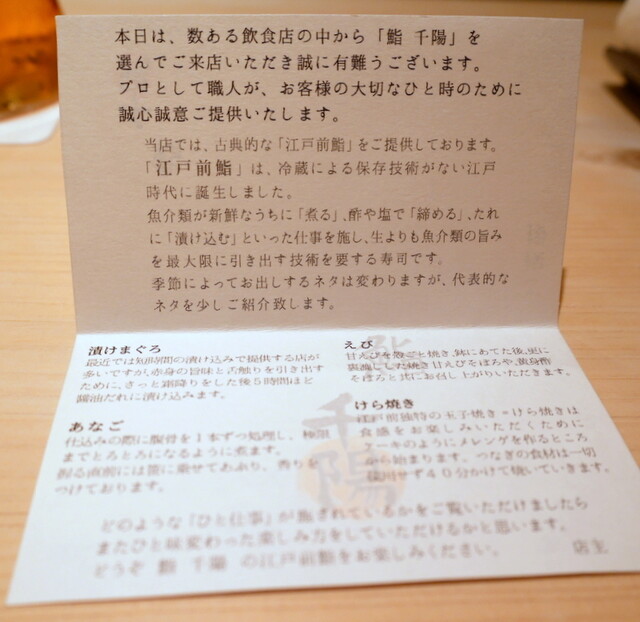 本日は、数ある飲食店の中から「鮨 千陽」を
選んでご来店いただき誠に有難うございます。
プロとして職人が、お客様の大切なひと時のために
誠心誠意ご提供いたします。
当店では、古典的な「江戸前鮨」をご提供しております。
「江戸前鮨」は、冷蔵による保存技術がない江戸
時代に誕生しました。
魚介類が新鮮なうちに「煮る」、酢や塩で「締める」、たれ
に「漬け込む」といった仕事を施し、生よりも魚介類の旨み
を最大限に引き出す技術を要する寿司です。
季節によってお出しするネタは変わりますが、代表的な
ネタを少しご紹介致します。
漬けまぐろ
最近では短時間の漬け込みで提供する店が
多いですが、赤身の旨味と舌触りを引き出す
ために、さっと霜降りをした後5時間ほど
醤油だれに漬け込みます。
あなご
仕込みの際に腹骨を1本ずつ処理し、極限
までとろとろになるように煮ます。
握る直前には笹に乗せてあぶり、香りを
つけております。
えび
甘えびを殻ごと焼き、鉢にあてた後、更に
裏漉しした焼き甘えびそぼろや、黄身酢
そぼろと共にお召し上がりいただきます。
けら焼き
江戸前独特の玉子焼き・けら焼きは
食感をお楽しみいただくために
ケーキのようにメレンゲを作るところ
から始まります。つなぎの食材は一切
使用せず40分かけて焼いていきます。
鮨
千陽
どのような「ひと仕事」が施されているかをご覧いただけましたら
またひと味変わった楽しみ方をしていただけるかと思います。
どうぞ 鮨 千陽 の江戸前鮨をお楽しみください。
店主